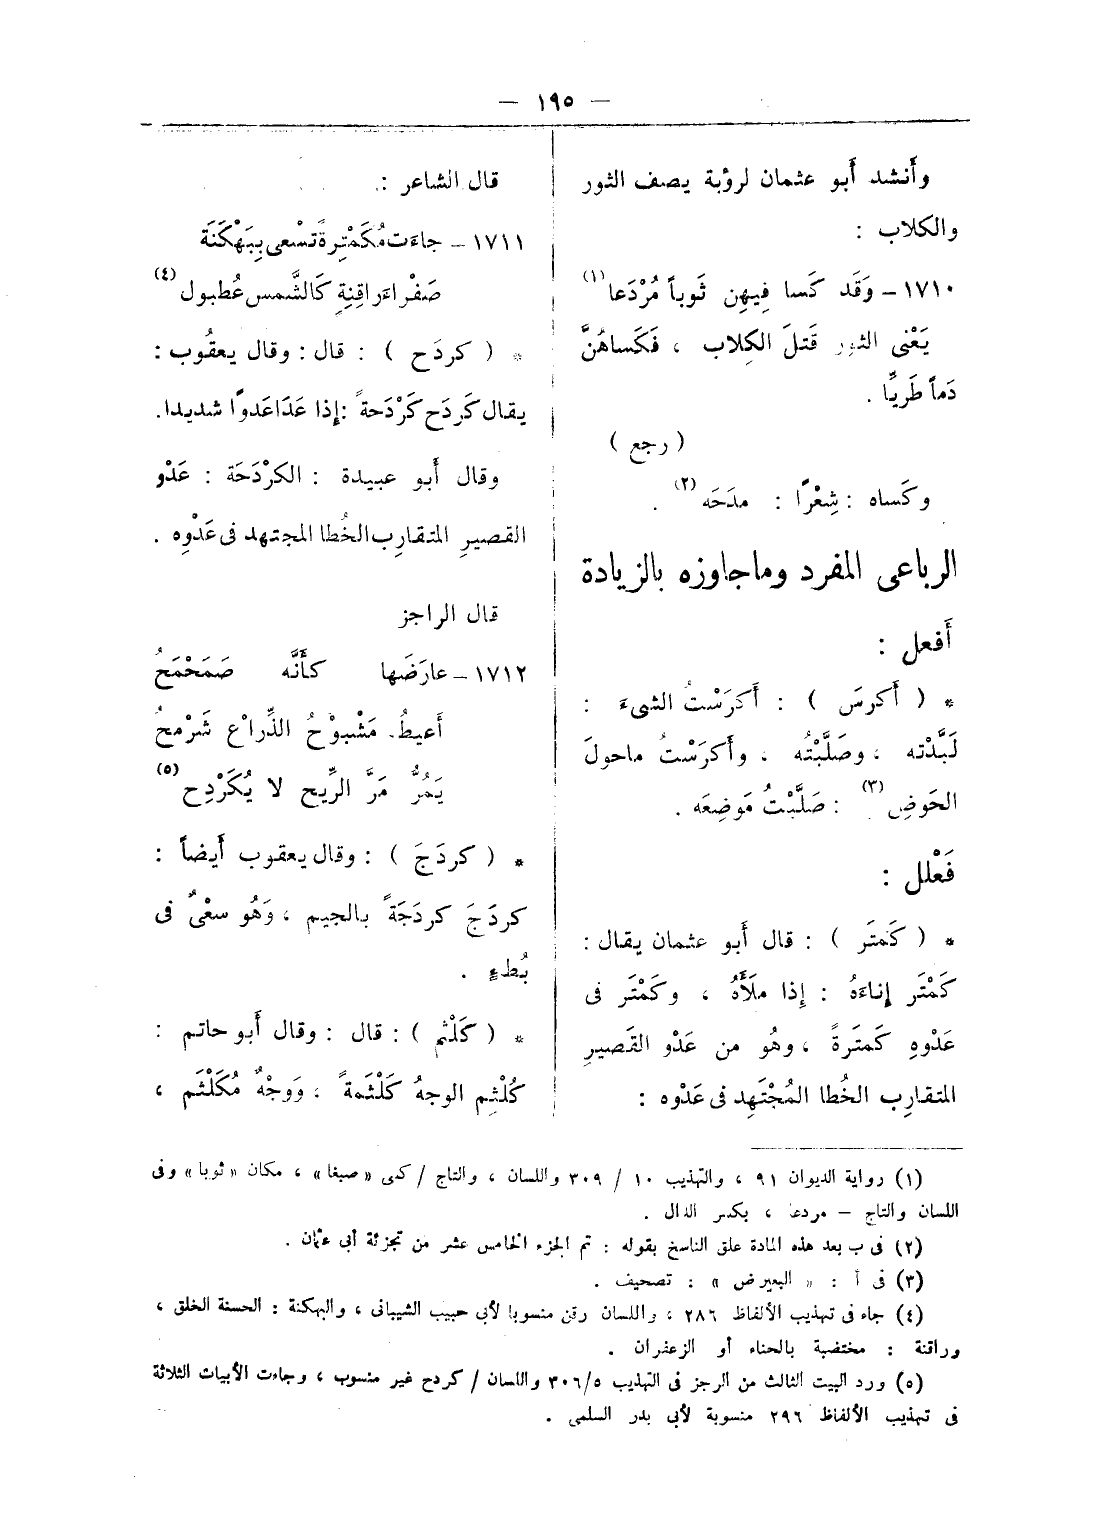 — ١٩٥ —
وأَنشد أَبو عثمان لرؤبة يصف الثور
والكلاب :
١٧١٠ – وَقَد كَسا فِيهِن ثَوباً مُرْدَعا (١)
يَعْنى الثور قَتلَ الكِلاب ، فَكَساهُنَّ
دَماً طَرِيًّا .
( رجع )
وكَساه : شِعْرًا : مدَحَه (٢) .
الرباعى المفرد وماجاوزه بالزيادة
أَفعل :
* ( أَكرسَ ) : أَكرَسْتُ الشىءَ :
لَبَّدْته ، وصَلَّبْتُه ، وأَكرَسْتُ ماحولَ
الحَوضِ (٣) : صَلَّبْتُ مَوضِعَه .
فَعْلل :
* ( كَمتَر ) : قال أَبو عثمان يقال :
كَمْتَر إِناءَهُ : إِذا ملَأَهُ ، وكَمْتَر فى
عَدْوِهِ كَمتَرةً ، وهُو من عَدْو القَصيرِ
المتقارِب الخُطا المُجْتَهِد فى عَدْوه :
قال الشاعر :
١٧١١ – جاءَت مُكَمْتِرةً تَسْعى بِبَهْكَنَة
صَفْراءَ راقِنةٍ كَالشَّمسِ عُطبول (٤)
* ( كردَح ) : قال : وقال يعقُوب :
يقال كَردَح كَرْدَحةً : إِذا عَدَا عَدوًا شديدا.
وقال أَبو عبيدة : الكرْدَحَة : عَدْو
القصيرِ المتقارِب الخُطا المجتهد فى عَدْوِه .
قال الراجز
١٧١٢ – عارَضَها كأَنَّه صَمَحْمَحُ
أَعيطُ مَشْبوْحُ الذِّراعْ شَرْمحُ
يَمُرُّ مَرَّ الرِّيح لا يُكَرْدِح (٥)
* ( كردَجَ ) : وقال يعقوب أَيضاً :
كردَجَ كردَجَةً بالجيم ، وَهُو سعْىٌ فى
بُطءٍ .
* ( كَلْثم ) : قال : وقال أَبو حاتم :
كُلْثِم الوجهُ كَلْثَمةً ، وَوَجْهٌ مُكَلْثَم ،
(١) رواية الديوان ٩١ ، والتهذيب ١٠ / ٣٠٩ واللسان ، والتاج / كسى «صبغا» ، مكان «ثوبا» وفى
اللسان والتاج – مردعا ، بكسر الدال .
(٢) فى ب بعد هذه المادة علق الناسخ بقوله : تم الجزء الخامس عشر من تجزئة أبى عثمان .
(٣) فى أ : « البعيرض » : تصحيف .
(٤) جاء فى تهذيب الألفاظ ٢٨٦ ، واللسان رقن منسوبا لأبى حبيب الشيبانى ، والبهكنة : الحسنة الخلق ،
وراقنة : مختضبة بالحناء أو الزعفران .
(٥) ورد البيت الثالث من الرجز فى التهذيب ٣٠٦/٥ واللسان / كردح غير منسوب ، وجاءت الأبيات الثلاثة
فى تهذيب الألفاظ ٢٩٦ منسوبة لأبى بدر السلمى .